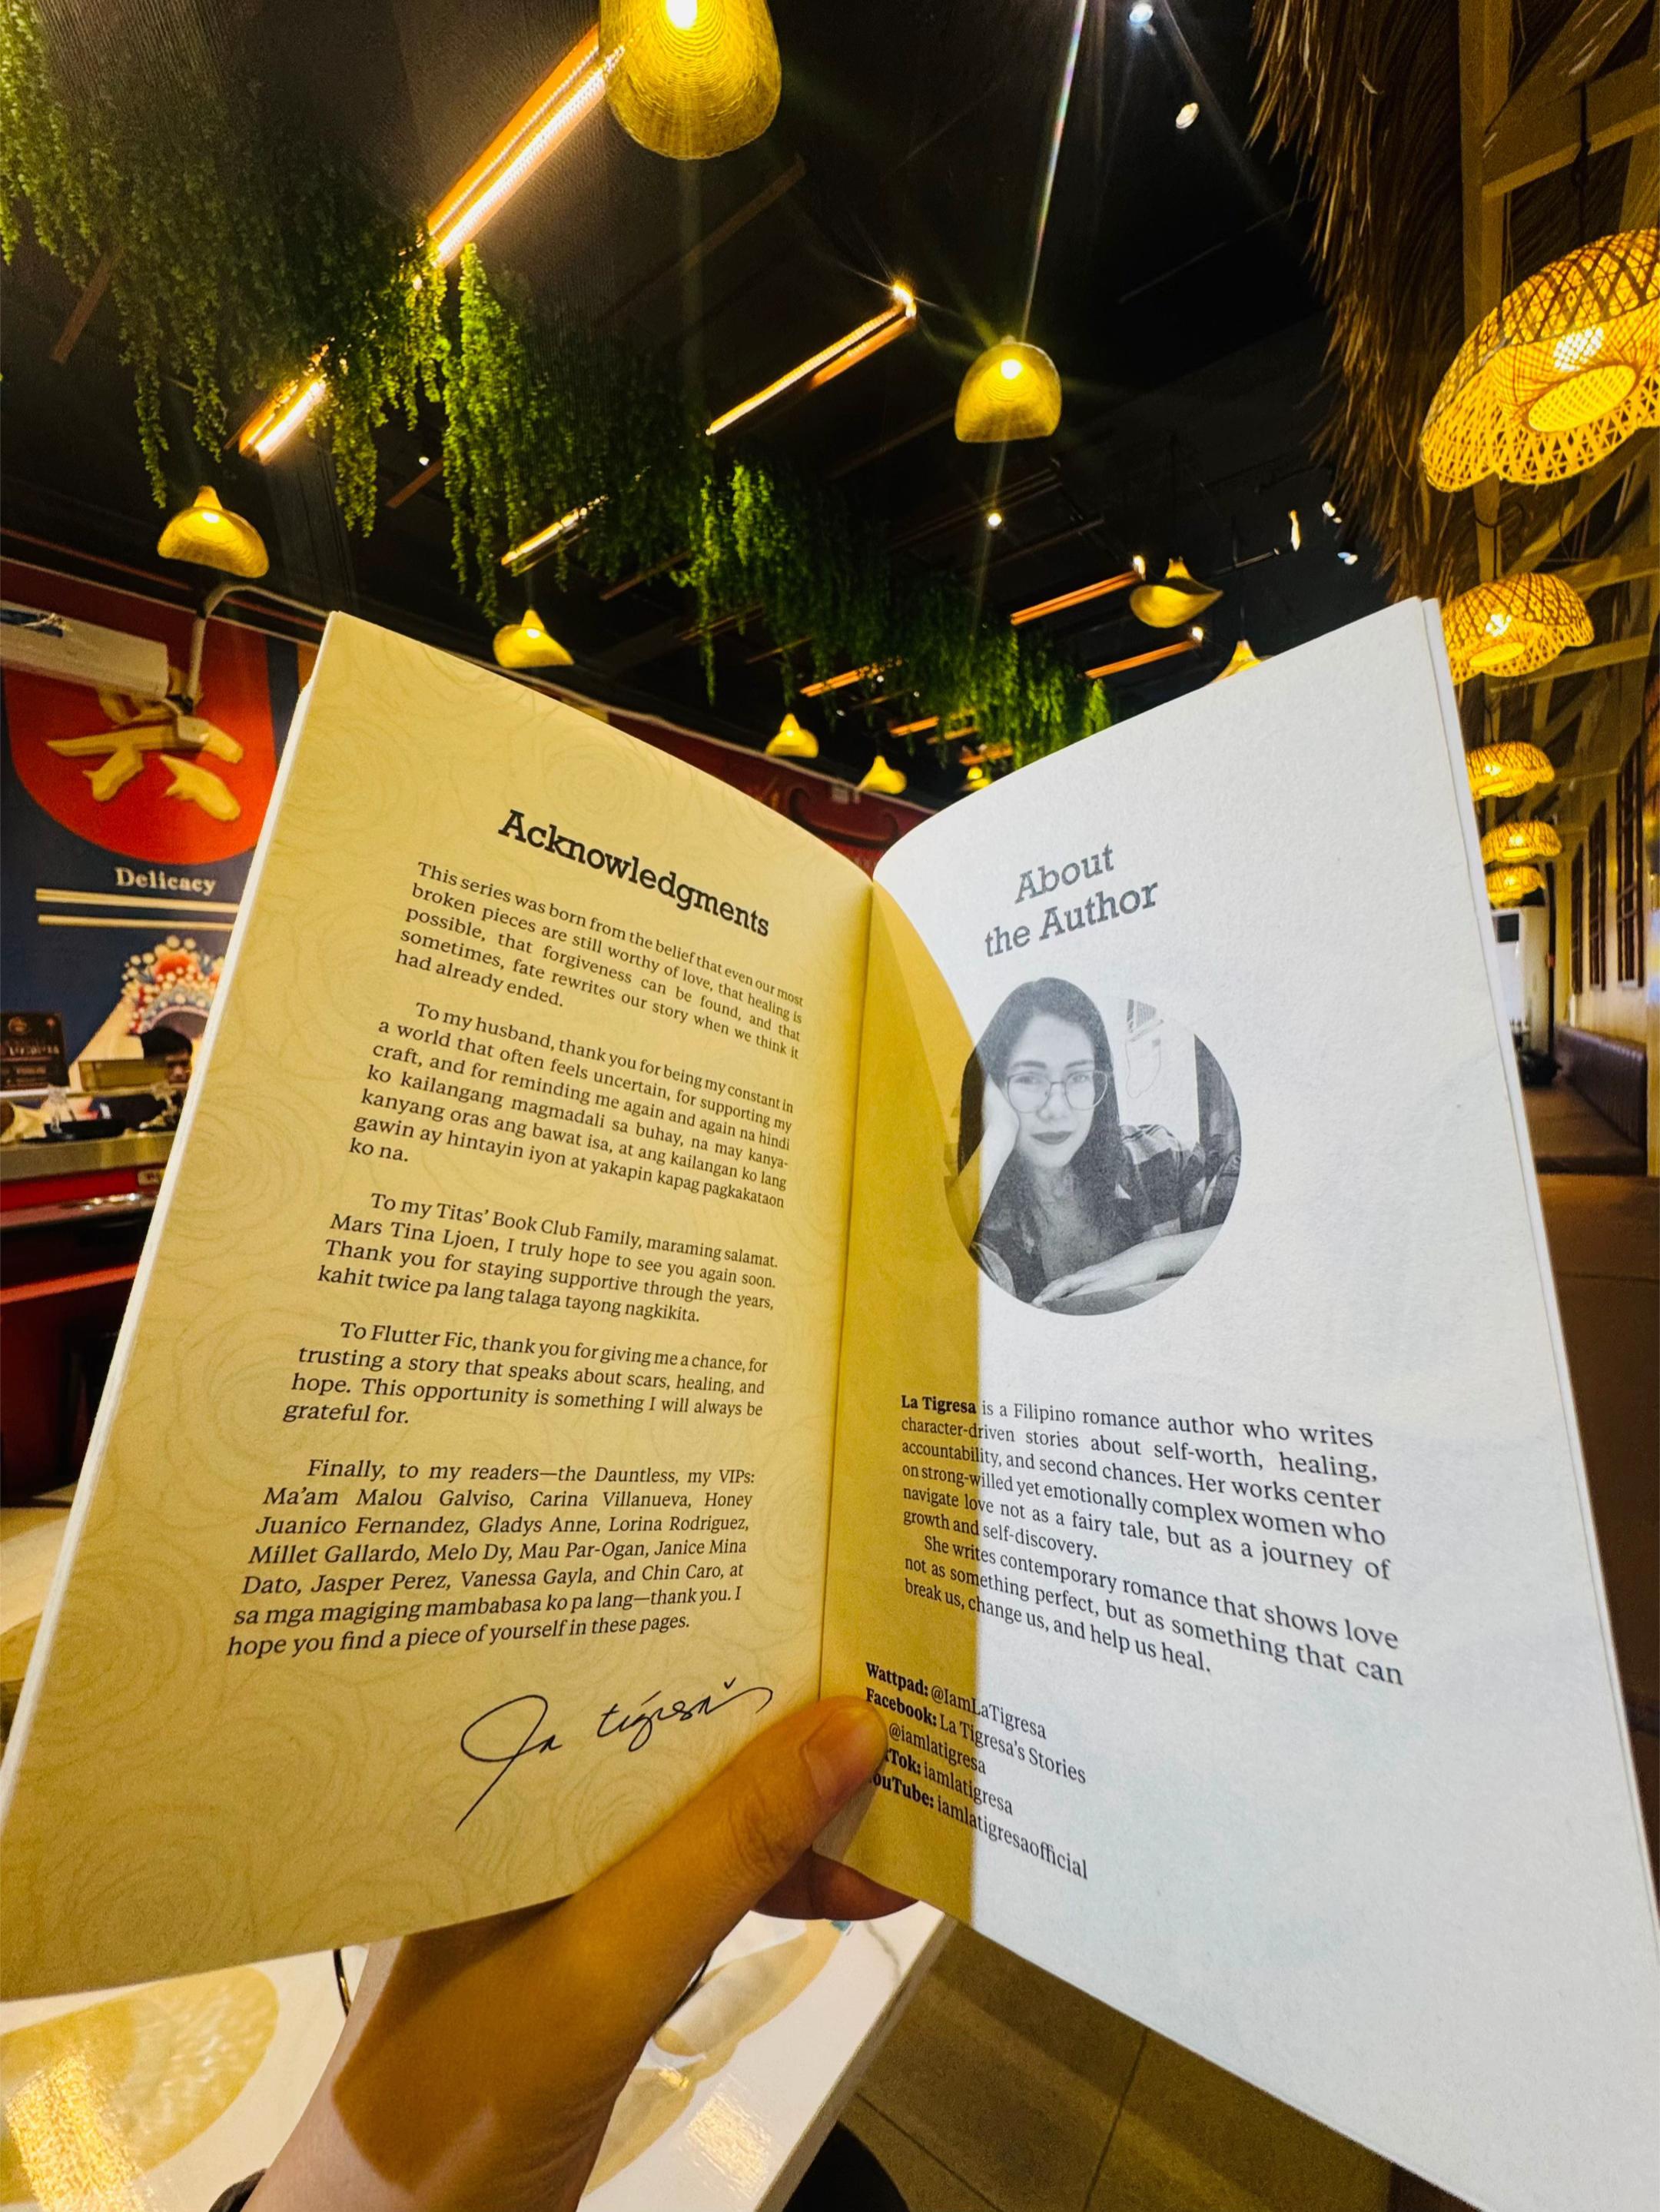 Delicacy
Acknowledgments
This series was born from the belief that even our most
broken pieces are still worthy of love, that healing is
possible, that forgiveness can be found, and that
sometimes, fate rewrites our story when we think it
had already ended.
To my husband, thank you for being my constant in
a world that often feels uncertain, for supporting my
craft, and for reminding me again and again na hindi
ko kailangang magmadali sa buhay, na may kanya-
kanyang oras ang bawat isa, at ang kailangan ko lang
gawin ay hintayin iyon at yakapin kapag pagkakataon
ko na.
To my Titas’ Book Club Family, maraming salamat.
Mars Tina Ljoen, I truly hope to see you again soon.
Thank you for staying supportive through the years,
kahit twice pa lang talaga tayong nagkikita.
To Flutter Fic, thank you for giving me a chance, for
trusting a story that speaks about scars, healing, and
hope. This opportunity is something I will always be
grateful for.
Finally, to my readers—the Dauntless, my VIPs:
Ma’am Malou Galviso, Carina Villanueva, Honey
Juanico Fernandez, Gladys Anne, Lorina Rodriguez,
Millet Gallardo, Melo Dy, Mau Par-Ogan, Janice Mina
Dato, Jasper Perez, Vanessa Gayla, and Chin Caro, at
sa mga magiging mambabasa ko pa lang—thank you. I
hope you find a piece of yourself in these pages.
About
the Author
La Tigresa is a Filipino romance author who writes
character-driven stories about self-worth, healing,
accountability, and second chances. Her works center
on strong-willed yet emotionally complex women who
navigate love not as a fairy tale, but as a journey of
growth and self-discovery.
She writes contemporary romance that shows love
not as something perfect, but as something that can
break us, change us, and help us heal.
Wattpad: @IamLaTigresa
Facebook: La Tigresa’s Stories
@iamlatigresa
Tok: iamlatigresa
ouTube: iamlatigresaofficial